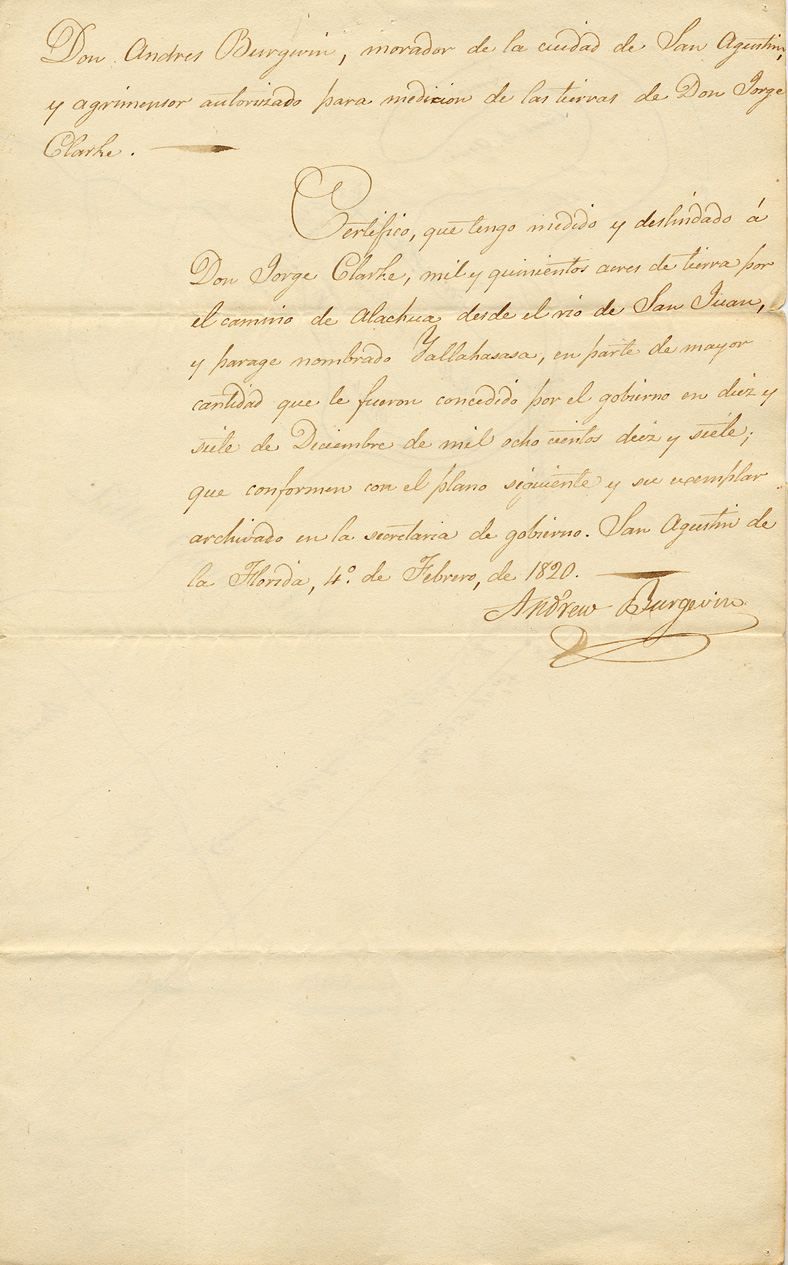 Don Andres Burgevin, morador de la ciudad de San Agustin,
y agrimensor autorizado para medicion de las tierras de Don Jorge
Clarke.
Certifico, que tengo medido y deslindado á
Don Jorge Clarke, mil y quinientos acres de tierra por
el camino de Alachua desde el rio de San Juan,
y parage nombrado Yallahasasa, en parte de mayor
cantidad que le fueron concedido por el gobierno en diez y
siete de Diciembre de mil ocho cientos diez y siete;
que conformen con el plano siguiente y su exemplar
archivado en la secretaria de gobierno. San Agustin de
la Florida, 4º. de Febrero, de 1820.
Andrew Burgevin